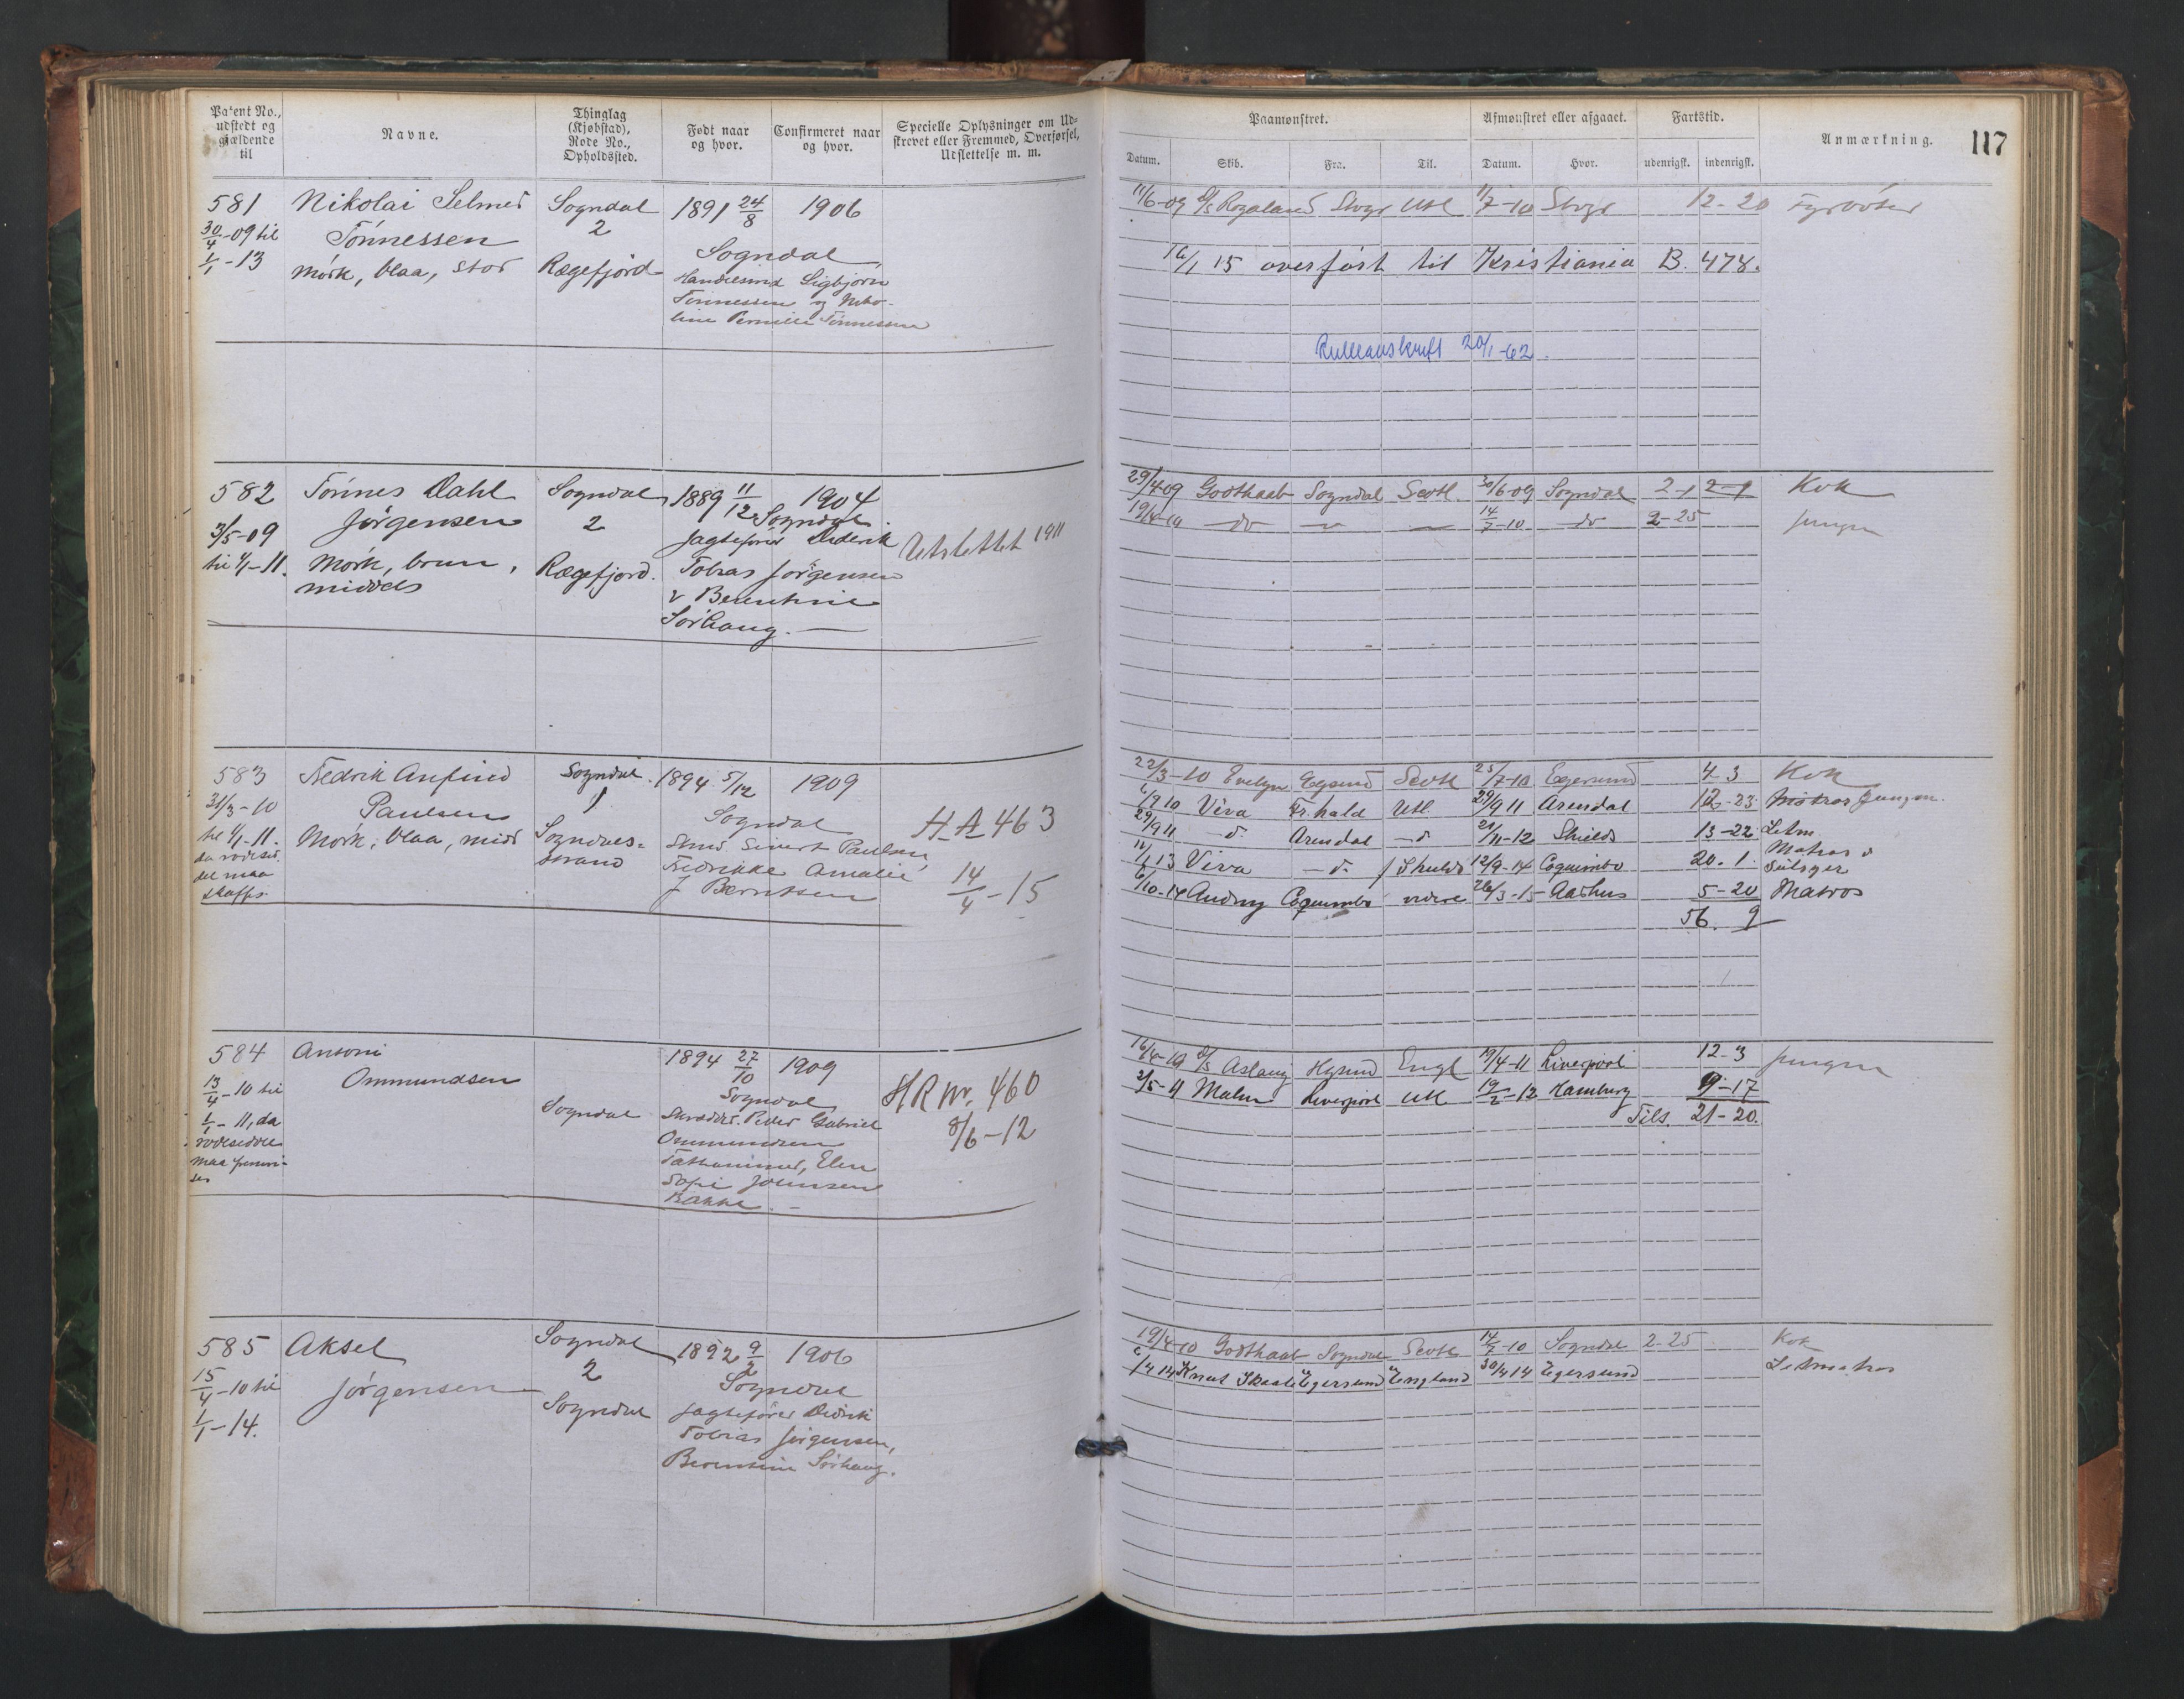 Patent No., udstedt og gjældende til
Navne.
Thinglag (Kjøbstad), Rode No., Opholdssted.
Født naar og hvor.
Confirmeret naar og hvor.
Specielle Oplysninger om Udskrevet eller Fremmed, Overførsel, Udslettelse m. m.
Paamønstret.
Afmønstret eller afgaaet.
Fartstid.
Anmærkning.
117
Datum.
Skib.
Fra.
Til.
Datum.
Hvor.
udenrigsk.
indenrigsk.
581 Nikolai Selmer Sogndal 1891 24/8 1906
30/4-09 til Tönnessen 2 Sogndal
1/1-13 Mörk, blaa, stor Rægefjord
Handelsmd Sigbjörn
Tönnessen og
Pernille Tönnessen
11/6-09 D/S Rogaland Stvgr Utl 11/7-10 Stvgr 12-20 Fyrböter
16/1 15 overfört til Kristiania B. 478.
Rulleavskrift 20/1-62.
582 Tönnes Dahl Sogndal 1889 11/12 1904
3/5-09 Jörgensen 2 Sogndal
til 1/1-11. Mörk, brun, middels Rægefjord.
Jagtefører Dederik
Tobias Jörgensen
Berentine
Sörhaug.
Utslettet 1911
29/4-09 Godthaab Sogndal Scotl. 30/6-09 Sogndal 2-1 2-1 Kok
19/4-10 do 14/7-10 do 2-25 Jungm
583 Fredrik Anfind Sogndal 1894 5/12 1909
31/3-10 Paulsen 1 Sogndal
til 1/1-11. Mörk, blaa, mid Sogndalsstrand
da rodesed.
del maa
skaffes
Sivert Paulsen
Fredrikke Amalie
Berntsen
HA 463
14/4-15
22/3-10 Evelyn Egersund Scotl 25/7-10 Egersund 4 3 Kok
6/9 10 Viva Fr.hald Utl. 29/9 11 Arendal 12-23 Jungm.
29/9 11 d. Arendal d 21/11-12 Shields 13-22 Letm
11/1 13 Viva d. f Shields 12/9-14 Coquimbo 20. 1 Matros
6/10-14 Audny Coquimbo videre 26/3-15 Aarhus 5-20 Matros
56. 9
584 Antoni 1894 27/10 1909
13/4-10 til Ommundsen Sogndal Sogndal
1/1-11, da
rodeseddel
maa
Skrædder. Peder Gabriel
Ommundsen
Tothammer, Elen
Sofie Johnsen
Bakke.
HR Nr. 460
8/6-12
16/4-10 D/S Aslaug Hgsund Engl 19/4-11 Liverpool 12-3 Jungm
2/5-11 Malm Liverpool Utl 19/2-12 Hamburg 9-17
Tils. 21-20.
585 Aksel Sogndal 1892 9/2 1906
15/4-10 til Jörgensen 2 Sogndal
1/1-14. Sogndal
Jagtefører Didrik
Tobias Jörgensen,
Berentine Sörhaug.
19/4-10 Godthaab Sogndal Scotl 14/7-10 Sogndal 2-25 Kok
Knut Skaale Egersund England 30/4 14 Egersund Letmatros